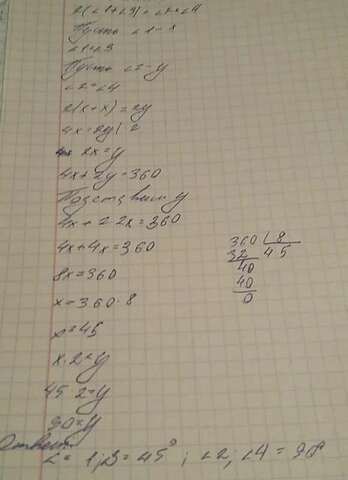 2(∠1+∠3)=∠2+∠4
Пусть ∠1-x
∠1=∠3
Пусть ∠2-y
∠2=∠4
2(x+x)=2y
4x=2y|:2
2x=y
4x+2y=360
Подставим y
4x+2·2x=360
4x+4x=360
8x=360
x=360:8
x=45
x·2=y
45·2=y
90=y
Ответ
∠=1;3=45°; ∠2;∠4=90°
360 8
32 45
40
40
0